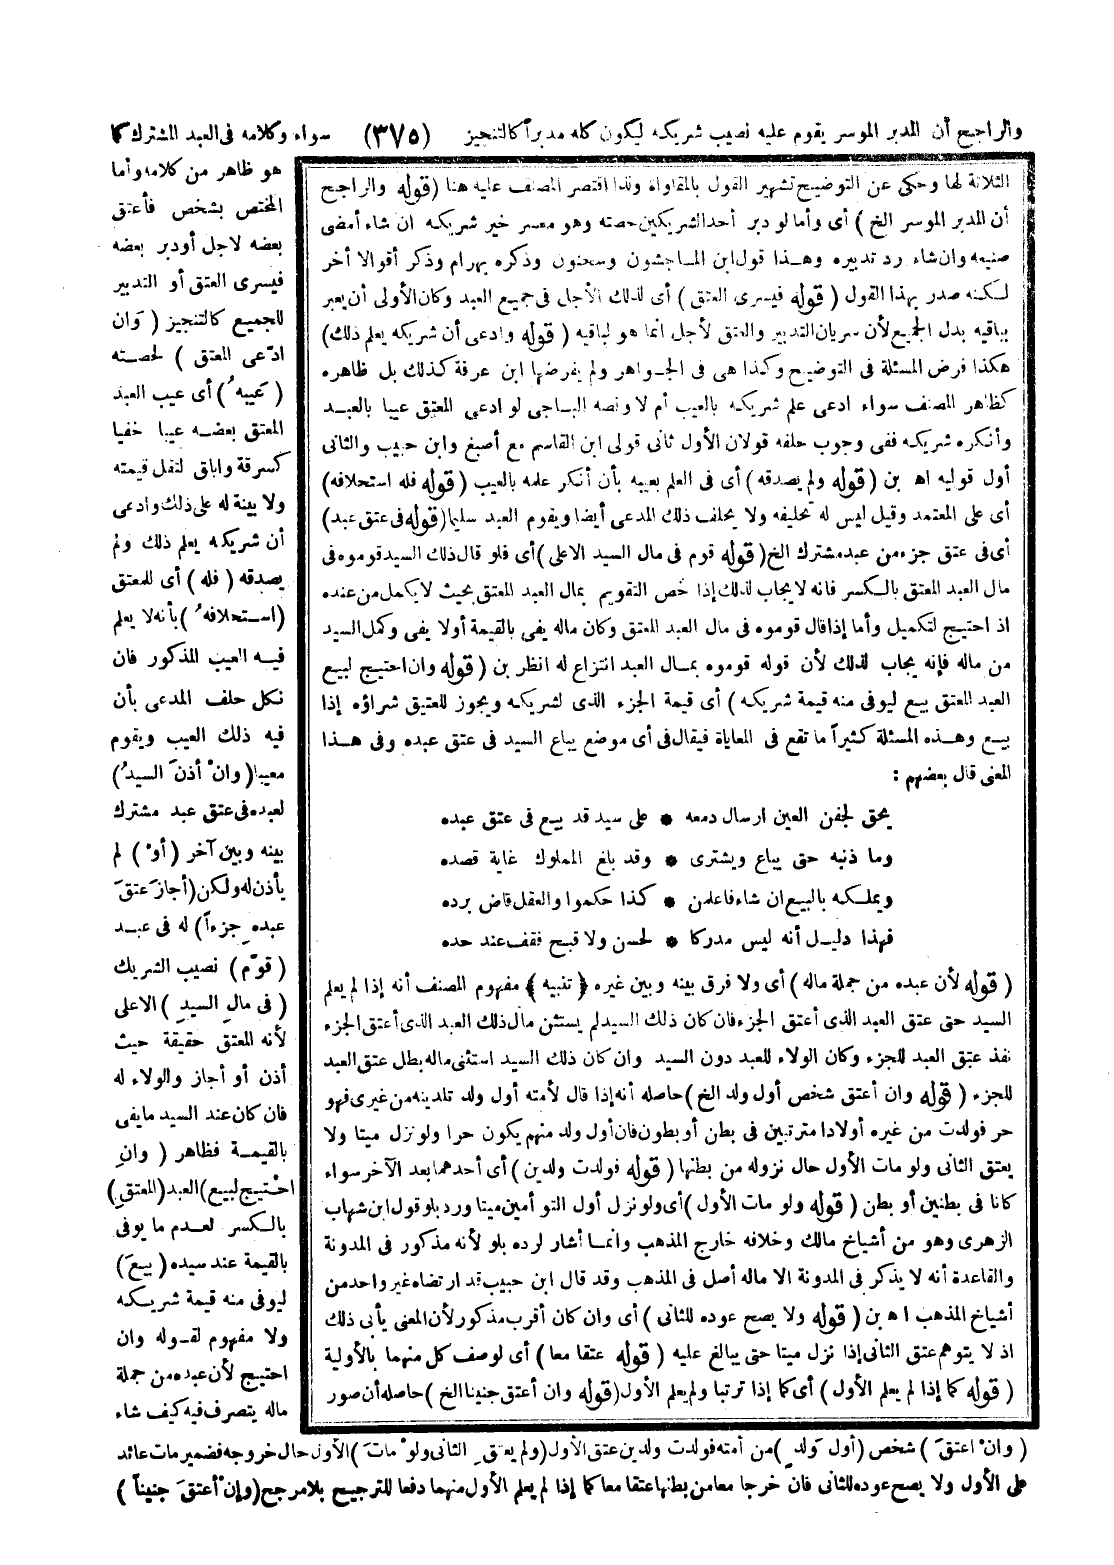 والراجح أن المدبر الموسر يقوم عليه نصيب شريكه ليكون كله مدبراً كالتنجيز (٣٧٥) سواء وكلامه فى العبد المشترك كما
هو ظاهر من كلامه وأما
المختص بشخص فأعتق
بعضه لاجل أودبر بعضه
فيسرى العتق أو التدبير
للجميع كالتنجيز ( وَان
ادّعى المعتق ) لحصته
( عَيبه ُ) أى عيب العبد
المعتق بعضه عيبا خفيا
كسرقة واباق لتقل قيمته
ولا بينة له على ذلك وادعى
أن شريكه يعلم ذلك ولم
يصدقه ( فله ) أى للمعتق
(استحلافه ُ) بأنه لا يعلم
فيه العيب المذكور فان
نكل حلف المدعى بأن
فيه ذلك العيب ويقوم
معيبا (وانْ أذنَ السيدُ)
لعبده فى عتق عبد مشترك
بينه وبين آخر (أوْ) لم
يأذن له ولكن (أجازَ عتقَ
عبده ِ جزءاً) له فى عبد
( قوّم ) نصيب الشريك
( فى مالِ السيدِ ) الاعلى
لأنه المعتق حقيقة حيث
أذن أو أجاز والولاء له
فان كان عند السيد مايفى
بالقيمة فظاهر ( وانِ
احْتيج لبيع) العبد (المعتقِ)
بالكسر لعدم ما يوفى
بالقيمة عند سيده ( بيعَ)
ليوفى منه قيمة شريكه
ولا مفهوم لقوله وان
احتيج لأن عبده من جملة
ماله يتصرف فيه كيف شاء
( وانْ اعتقَ ) شخص (أول وَلدٍ ) من أمته فولدت ولدين عتق الأول (ولم يعتق ِ الثانى ولوْ ماتَ ) الأول حال خروجه فضمير مات عائد
على الأول ولا يصح عوده للثانى فان خرجا معا من بطنها عتقا معا كما إذا لم يعلم الأول منهما دفعا للترجيح بلا مرجح (وإنْ أعتقَ جنيناً )
الثلاثة لها وحكى عن التوضيح تشهير القول بالمقاواة ولذا اقتصر المصنف عليه هنا (قوله والراجح
أن المدبر الموسر الخ ) أى وأما لو دبر أحد الشريكين حصته وهو معسر خير شريكه ان شاء أمضى
صنيعه وان شاء رد تدبيره وهذا قول ابن الماجشون وسحنون وذكره بهرام وذكر أقوالا أخر
لكنه صدر بهذا القول ( قوله فيسرى العتق ) أى لذلك الأجل فى جميع العبد وكان الأولى أن يعبر
بباقيه بدل الجميع لأن سريان التدبير والعتق لأجل انما هو لباقيه ( قوله وادعى أن شريكه يعلم ذلك)
هكذا فرض المسئلة فى التوضيح وكذا هى فى الجواهر ولم يفرضها ابن عرفة كذلك بل ظاهره
كظاهر المصنف سواء ادعى علم شريكه بالعيب أم لا ونصه الباجى لو ادعى المعتق عيبا بالعبد
وأنكره شريكه ففى وجوب حلفه قولان الأول ثانى قولى ابن القاسم مع أصبغ وابن حبيب والثانى
أول قوليه اه بن ( قوله ولم يصدقه ) أى فى العلم بعيبه بأن أنكر علمه بالعيب ( قوله فله استحلافه)
أى على المعتمد وقيل ليس له تحليفه ولا يحلف ذلك المدعى أيضا ويقوم العبد سليما (قوله فى عتق عبد)
أى فى عتق جزء من عبد مشترك الخ ( قوله قوم فى مال السيد الاعلى ) أى فلو قال ذلك السيد قوموه فى
مال العبد المعتق بالكسر فانه لا يجاب لذلك إذا خص التقويم بمال العبد المعتق بحيث لا يكمل من عنده
اذ احتيج لتكميل وأما إذا قال قوموه فى مال العبد المعتق وكان ماله يفى بالقيمة أو لا يفى وكمل السيد
من ماله فإنه يجاب لذلك لأن قوله قوموه بمال العبد انتزاع له انظر بن ( قوله وان احتيج لبيع
العبد المعتق بيع ليوفى منه قيمة شريكه ) أى قيمة الجزء الذى لشريكه ويجوز للعتيق شراؤه إذا
بيع وهذه المسئلة كثيراً ما تقع فى المعاياة فيقال فى أى موضع يباع السيد فى عتق عبده وفى هذا
المعنى قال بعضهم :
يحق لجفن العين ارسال دمعه * على سيد قد بيع فى عتق عبده
وما ذنبه حتى يباع ويشترى * وقد بلغ المملوك غاية قصده
ويملكه بالبيع ان شاء فاعلمن * كذا حكموا والعقل قاض برده
فهذا دليل أنه ليس مدركا * لحسن ولا قبح فقف عند حده
( قوله لأن عبده من جملة ماله ) أى ولا فرق بينه وبين غيره ﴿ تنبيه ﴾ مفهوم المصنف أنه إذا لم يعلم
السيد حتى عتق العبد الذى أعتق الجزء فان كان ذلك السيد لم يستثن مال ذلك العبد الذى أعتق الجزء
نفذ عتق العبد للجزء وكان الولاء للعبد دون السيد وان كان ذلك السيد استثنى ماله بطل عتق العبد
للجزء ( قوله وان أعتق شخص أول ولد الخ ) حاصله أنه إذا قال لأمته أول ولد تلدينه من غيرى فهو
حر فولدت من غيره أولادا مترتبين فى بطن أو بطون فان أول ولد منهم يكون حرا ولو نزل ميتا ولا
يعتق الثانى ولو مات الأول حال نزوله من بطنها ( قوله فولدت ولدين ) أى أحدهما بعد الآخر سواء
كانا فى بطنين أو بطن ( قوله ولو مات الأول ) أى ولو نزل أول التوأمين ميتا ورد بلو قول ابن شهاب
الزهرى وهو من أشياخ مالك وخلافه خارج المذهب وانما أشار لرده بلو لأنه مذكور فى المدونة
والقاعدة أنه لا يذكر فى المدونة الا ماله أصل فى المذهب وقد قال ابن حبيب قد ارتضاه غير واحد من
أشياخ المذهب اه بن ( قوله ولا يصح عوده للثانى ) أى وان كان أقرب مذكور لأن المعنى يأبى ذلك
اذ لا يتوهم عتق الثانى إذا نزل ميتا حتى يبالغ عليه ( قوله عتقا معا ) أى لوصف كل منهما بالأولية
( قوله كما إذا لم يعلم الأول ) أى كما إذا ترتبا ولم يعلم الأول (قوله وان أعتق جنينا الخ ) حاصله أن صور